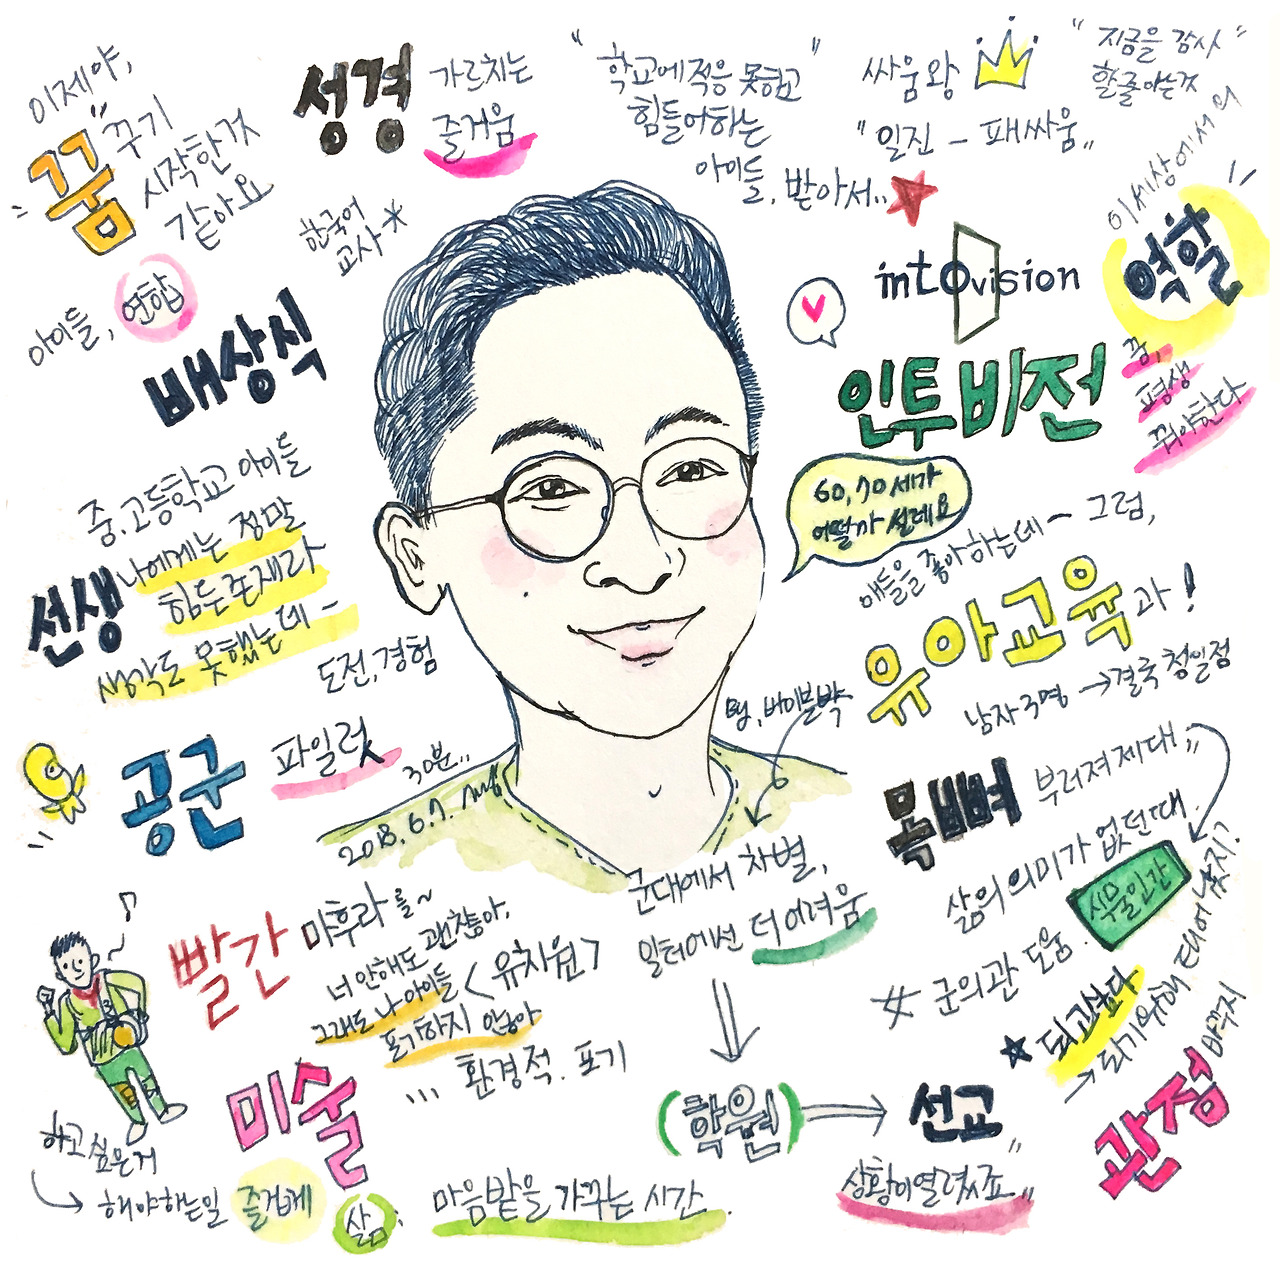 이제야,
"꿈" 꾸기
시작한 것
같아요
성경 가르치는
즐거움
한국어
교사*
"학교에 적응 못하고
힘들어하는
아이들, 받아서..
싸움왕
"일진 - 패싸움"
"지금을 감사
할 줄 아는 것
이 세상에서의
역할
꿈,
평생
꿔야한다
아이들, 연합
배상식
intovision
인투비전
60, 70세가
어떨까 설레요
중.고등학교 아이들
선생 나에게는 정말
힘든 존재라
생각도 못했는데 -
도전, 경험
애들을 좋아하는데~ 그럼,
유아교육과!
남자 3명 → 결국 청일점
by, 버이블박
공군 파일럿 30분..
2018. 6. 7.
목뼈 부러져 제대"
삶의 의미가 없던 때
식물인간
# 군의관 도움.
군대에서 차별,
일터에선 더 어려움
빨간 마후라를~
너 안해도 괜찮아,
그래도 나 아이들 <유치원>
포기하지 않아
... 환경적. 포기
미술
(학원) → 선교"
상황이 열렸죠"
★ 되고 싶다
→ 되기 위해
관점 바꾸지
하고 싶은 거
→ 해야하는 일 즐겁게
삶: 마음밭을 가꾸는 시간.